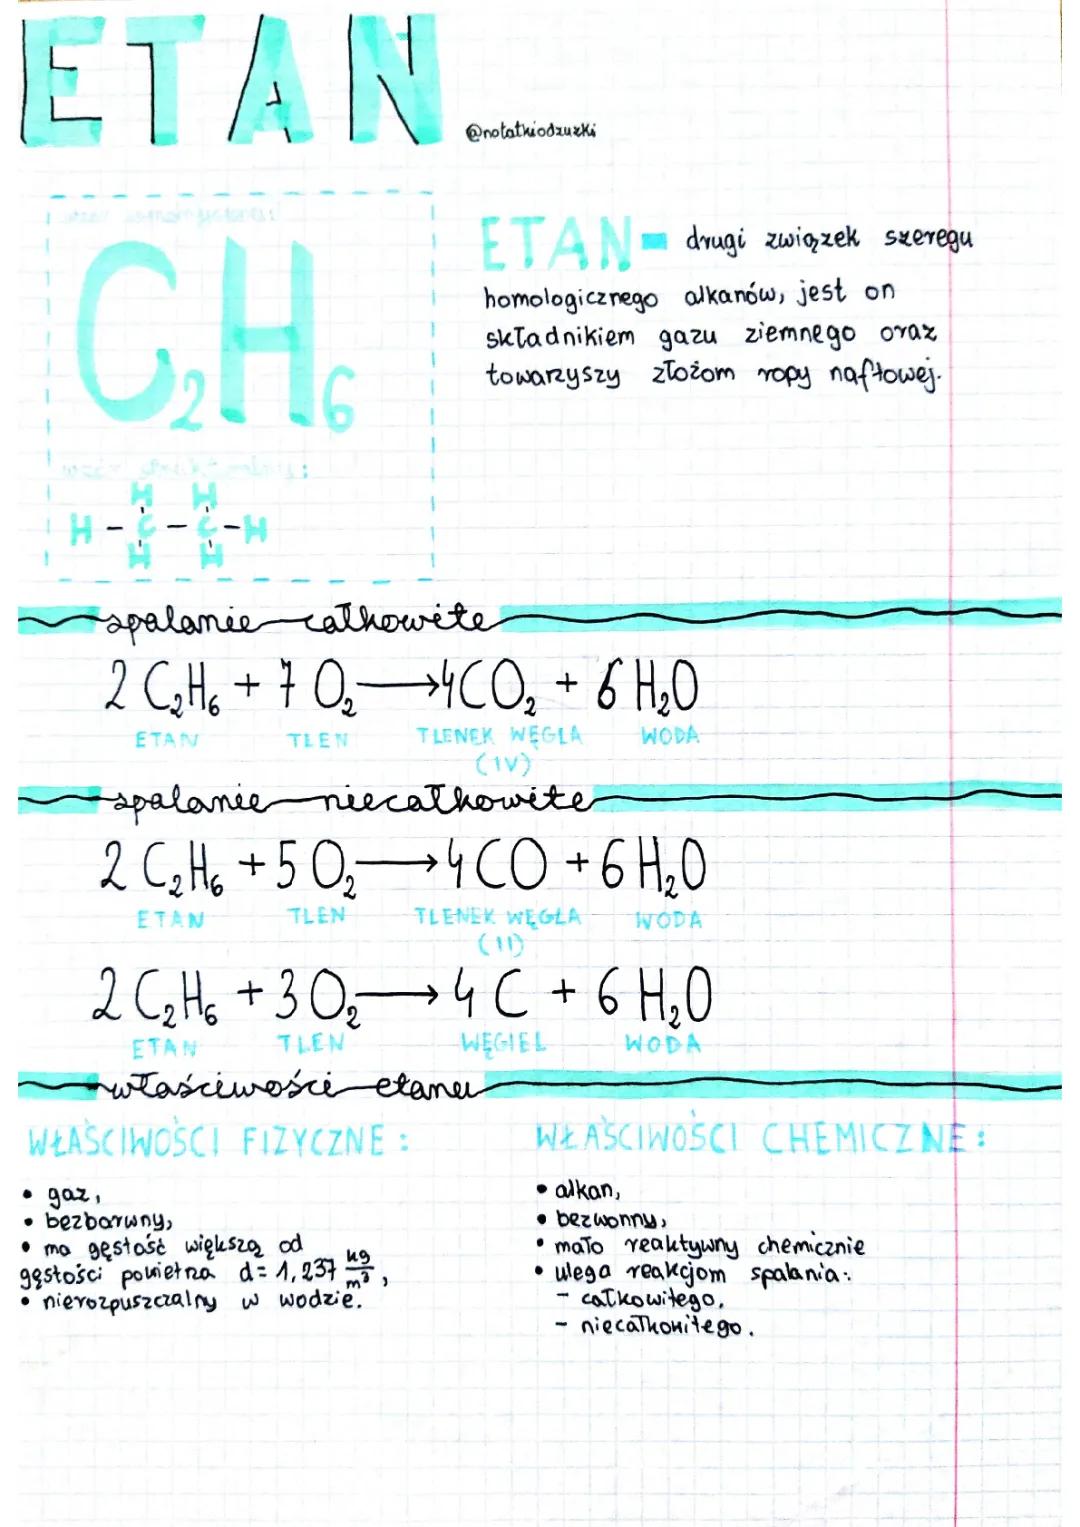 ETAN
@notatkiodzuzki
C₂H₆
ETAN - drugi związek szeregu
homologicznego alkanów, jest on
składnikiem gazu ziemnego oraz
towarzyszy złożom ropy naftowej.
H H
H-C-C-H
H H
spalanie całkowite
2 C₂H₆ + 7 O₂ → 4CO₂ + 6 H₂O
ETAN TLEN TLENEK WĘGLA WODA
(IV)
spalanie niecałkowite
2 C₂H₆ + 5 O₂ → 4 CO + 6 H₂O
ETAN TLEN TLENEK WĘGLA WODA
(II)
2 C₂H₆ + 3 O₂ → 4 C + 6 H₂O
ETAN TLEN WĘGIEL WODA
właściwości etanu
WŁAŚCIWOŚCI FIZYCZNE:
• gaz,
• bezbarwny,
• ma gęstość większą od
gęstości powietrza d= 1,237 kg/m³,
• nierozpuszczalny w wodzie.
WŁAŚCIWOŚCI CHEMICZNE:
• alkan,
• bezwonny,
• mało reaktywny chemicznie
• ulega reakcjom spalania:
- całkowitego,
- niecałkowitego.